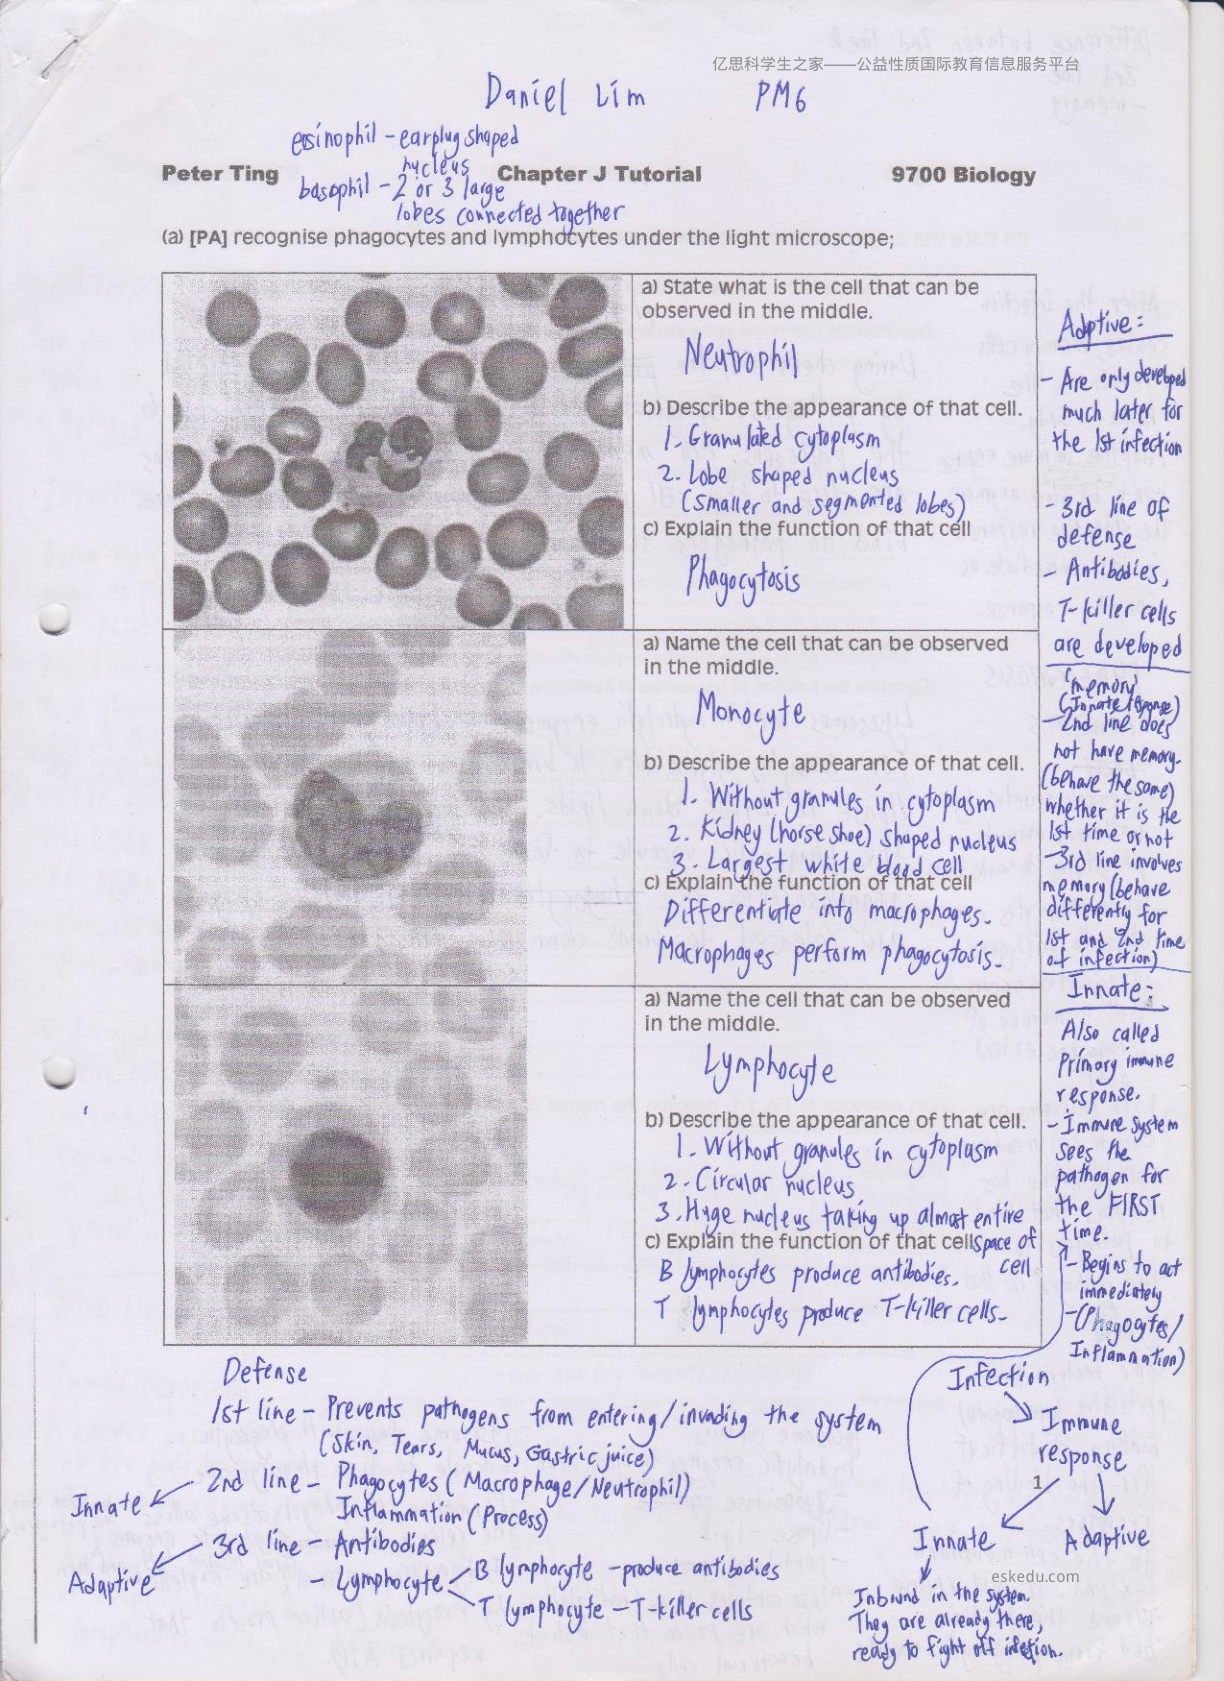 亿思科学生之家——公益性质国际教育信息服务平台
Daniel Lim PM6
eosinophil - earplug shaped
nucleus
basophil - 2 or 3 large
lobes connected together
Peter Ting Chapter J Tutorial 9700 Biology
(a) [PA] recognise phagocytes and lymphocytes under the light microscope;
a) State what is the cell that can be
observed in the middle.
Neutrophil
b) Describe the appearance of that cell.
1. Granulated cytoplasm
2. Lobe shaped nucleus
(smaller and segmented lobes)
c) Explain the function of that cell
Phagocytosis
a) Name the cell that can be observed
in the middle.
Monocyte
b) Describe the appearance of that cell.
1. Without granules in cytoplasm
2. Kidney (horse shoe) shaped nucleus
3. Largest white blood cell
c) Explain the function of that cell
Differentiate into macrophages.
Macrophages perform phagocytosis.
a) Name the cell that can be observed
in the middle.
Lymphocyte
b) Describe the appearance of that cell.
1. Without granules in cytoplasm
2. Circular nucleus
3. Huge nucleus taking up almost entire
space of
cell
c) Explain the function of that cell
B lymphocytes produce antibodies.
T lymphocytes produce T-killer cells.
Adptive:
- Are only developed
much later for
the 1st infection
- 3rd line of
defense
- Antibodies,
T-killer cells
are developed
(memory)
(Innate response)
- 2nd line does
not have memory.
(behave the same)
whether it is the
1st time or not
- 3rd line involves
memory (behave
differently for
1st and 2nd time
of infection)
Innate:
Also called
Primary immune
response.
- Immune system
sees the
pathogen for
the FIRST
time.
- Begins to act
immediately
- (Phagocytes/
Inflammation)
Defense
1st line - Prevents pathogens from entering/invading the system
(Skin, Tears, Mucus, Gastric juice)
Innate 2nd line - Phagocytes (Macrophage/Neutrophil)
Inflammation (Process)
Adaptive 3rd line - Antibodies
- Lymphocyte B lymphocyte - produce antibodies
T lymphocyte - T-killer cells
Infection
Immune
response
1
Innate Adaptive
eskedu.com
Inbound in the system.
They are already there,
ready to fight off infection.